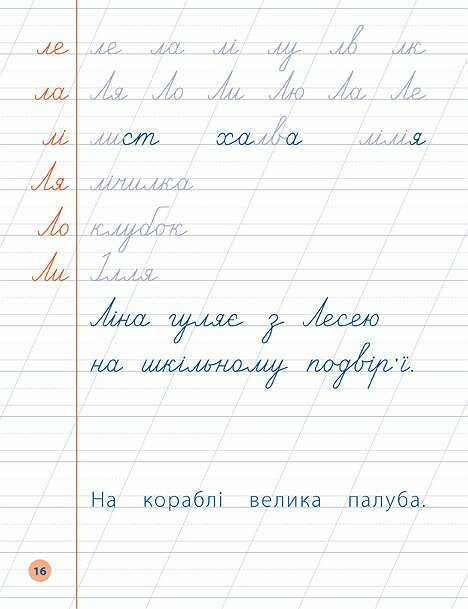 ле ле ла лі лу лв лк
ла Ля Ло Ли Лю Ла Ле
лі лист халва лілія
Ля лічилка
Ло клубок
Ли Ілля
Ліна гуляє з Лесею
на шкільному подвір'ї.
На кораблі велика палуба.
16